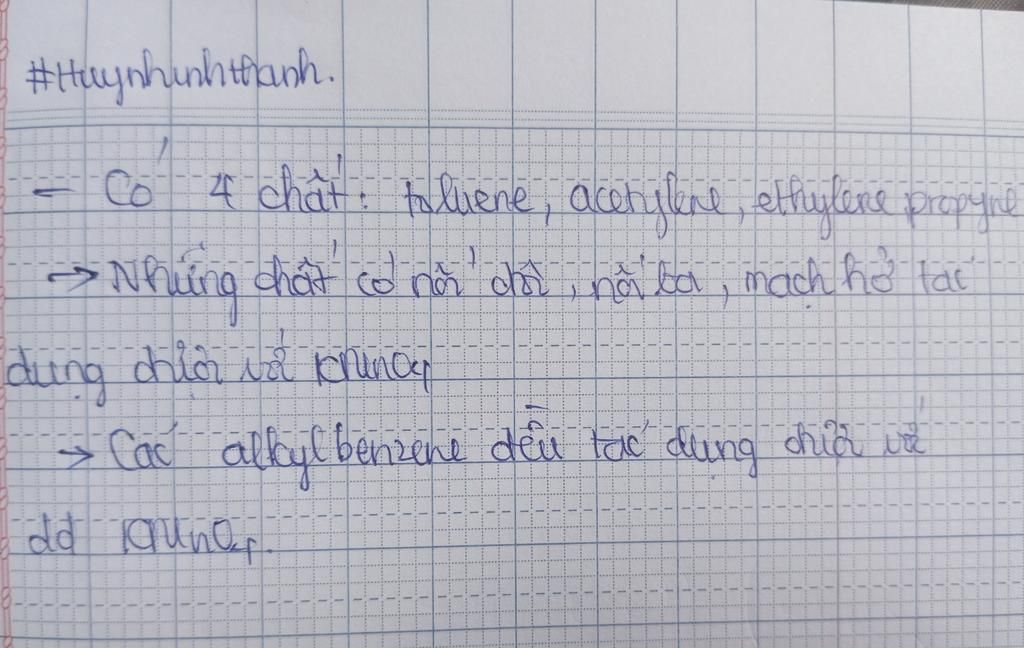 #Huynhinhthanh.
- Có 4 chất: toluene, acetylene, ethylene propyne
→ Những chất có nối đôi, nối ba, mạch hở tác
dụng được với KMnO4
→ Các alkylbenzene đều tác dụng được với
dd KMnO4.